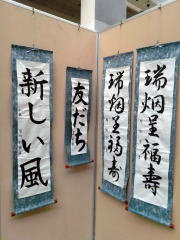 新しい風
友だち
瑞烟呈福寿
瑞烟呈福壽